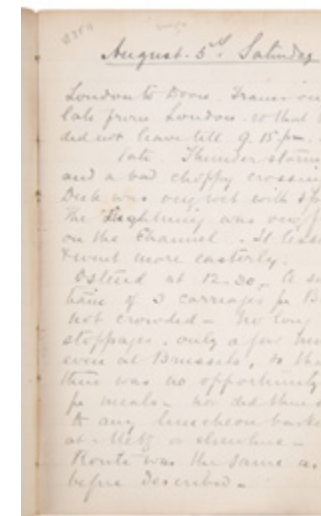 August 5th Saturday
London to Dover. Trains
late from London. so that
did not leave till 9.15 pm.
late. Thunder storm
and a bad choppy crossing
Deck was very wet with
The lightning was very
on the Channel. It
went more easterly.
Ostend at 12.30. A
train of 3 carriages for B
not crowded - No long
stoppages. only a few
even at Brussels, so tha
there was no opportunity
for meals - nor did
to any luncheon bask
at - Metz or elsewhere -
Route was the same as
before described -